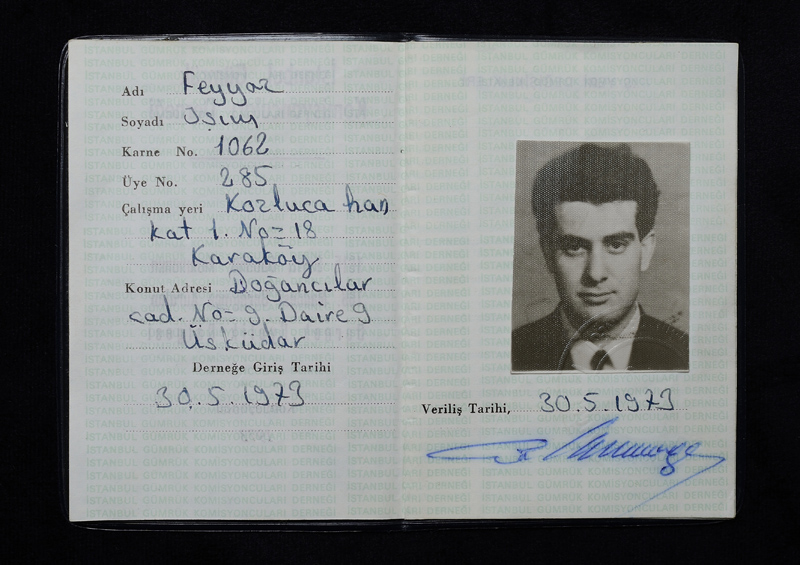 Adı Feyyaz
Soyadı Uşım
Karne No. 1062
Üye No. 285
Çalışma yeri Kozluca han
kat 1. No= 18
Karaköy
Konut Adresi Doğancılar
cad. No= 9. Daire 9
Üsküdar
Derneğe Giriş Tarihi
30.5.1973
Veriliş Tarihi, 30.5.1973
İSTANBUL GÜMRÜK KOMİSYONCULARI DERNEĞİ